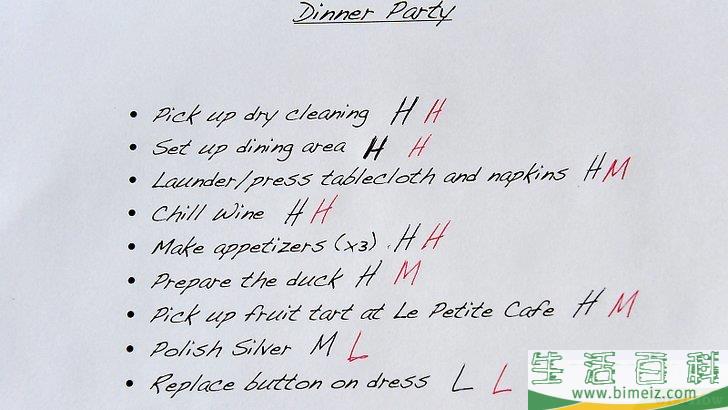 Dinner Party
• Pick up dry cleaning H H
• Set up dining area H H
• Launder/press tablecloth and napkins H M
• Chill Wine H H
• Make appetizers (x3). H H
• Prepare the duck H M
• Pick up fruit tart at Le Petite Cafe H M
• Polish Silver M L
• Replace button on dress L L
生活百科
www.bimeiz.com